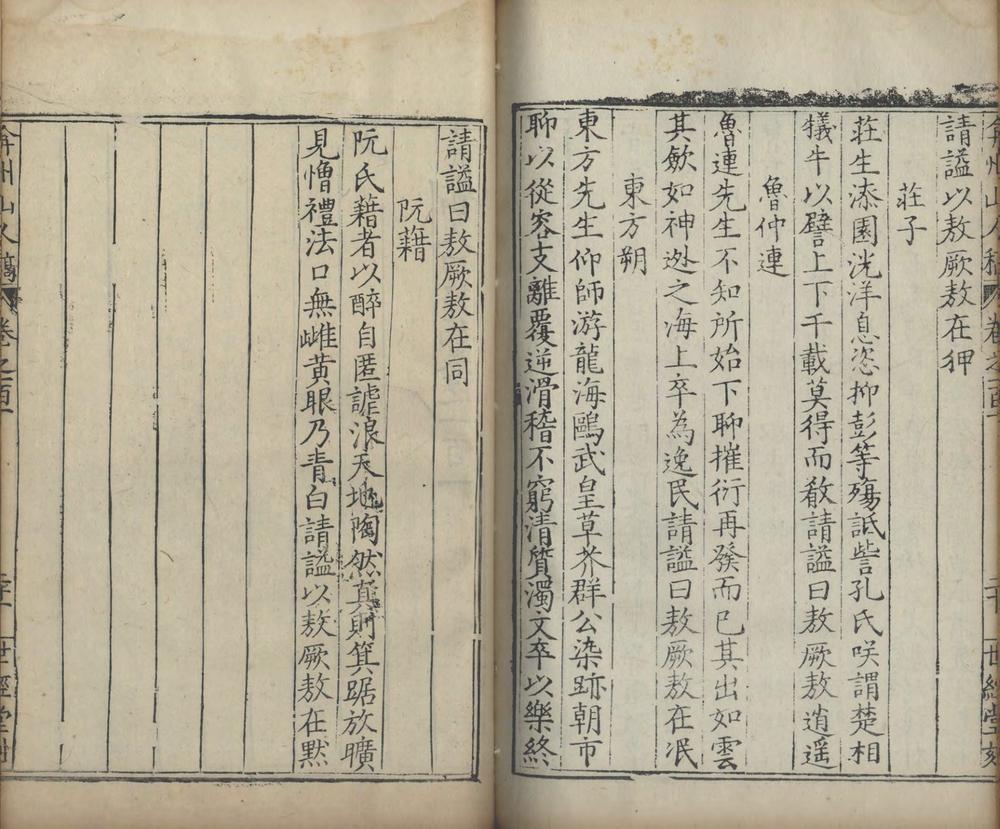 弇州山人稿 卷之百 二十 世經堂刻
請謚以敖厥敖在狎
莊子
莊生漆園洸洋自恣抑彭等殤詆訾孔氏咲謂楚相
犧牛以譬上下千載莫得而敎請謚曰敖厥敖逍遥
魯仲連
魯連先生不知所始下聊摧衍再發而已其出如雲
其歛如神逃之海上卒為逸民請謚曰敖厥敖在泯
東方朔
東方先生仰師游龍海鷗武皇草芥群公染跡朝市
聊以從容支離覆逆滑稽不窮清質濁文卒以樂終
請謚曰敖厥敖在同
阮籍
阮氏藉者以醉自匿謔浪天地陶然真則箕踞放曠
見憎禮法口無雌黄眼乃青白請謚以敖厥敖在黙
弇州山人稿 卷之百 世經堂刻